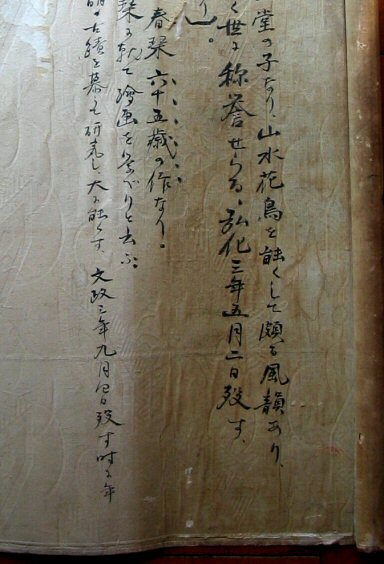 堂の子なり、山水花鳥を能くして頗る風韻あり、
く世に称誉せらる、弘化三年五月二日歿す、
り」。
春琹六十五歳の作なり。
琹に就て絵画を学べりと云ふ、
明の古蹟を慕ひ研究し大に能くす、文政三年九月四日歿す時に年